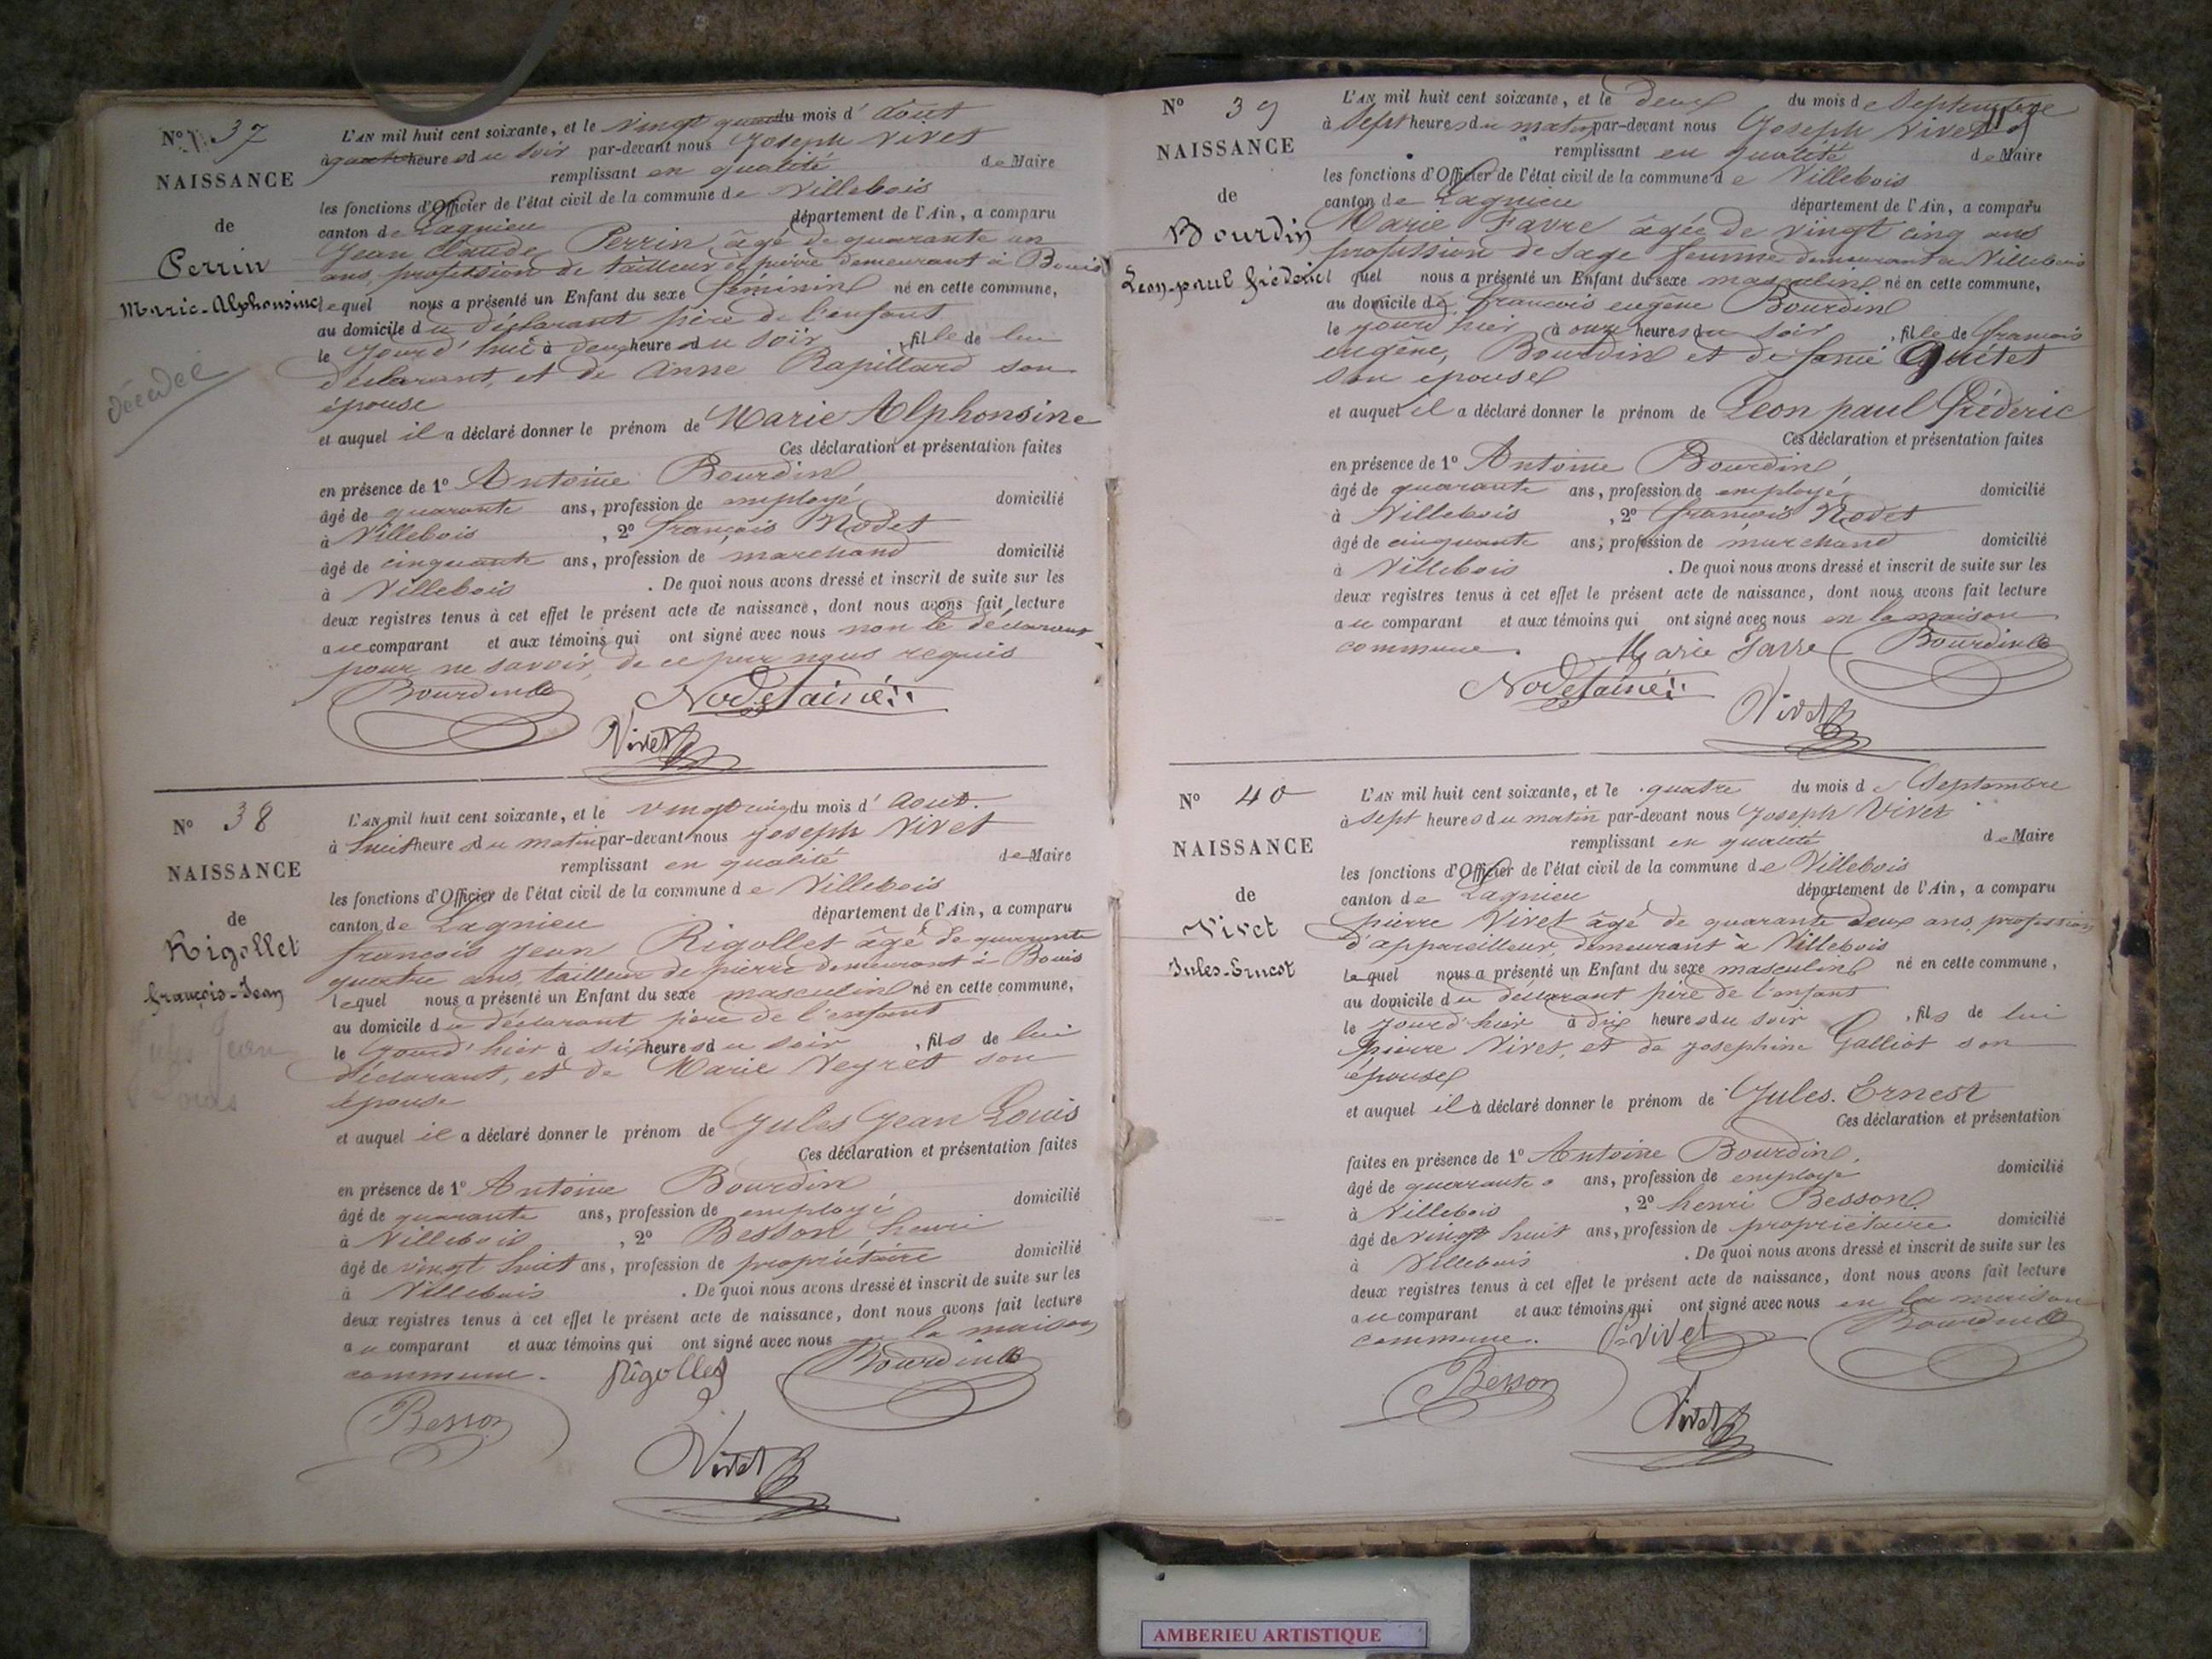 N° 37
NAISSANCE
de
Perrin
Marie-Alphonsine
décédée
L'AN mil huit cent soixante, et le vingt du mois d'Août
à heures du soir par-devant nous Joseph Vivet
remplissant en qualité de Maire
les fonctions d'Officier de l'état civil de la commune de Villebois
canton de Lagnieu département de l'Ain, a comparu
Jean Claude Perrin âgé de quarante un
ans, profession de tailleur de pierre demeurant à Bouis
lequel nous a présenté un Enfant du sexe féminin né en cette commune,
au domicile du déclarant père de l'enfant
le jourd'hui à deux heures du soir, fille de lui
déclarant, et de Anne Rapillard son
épouse
et auquel il a déclaré donner le prénom de Marie Alphonsine
Ces déclaration et présentation faites
en présence de 1° Antoine Bourdin
âgé de quarante ans, profession de employé domicilié
à Villebois, 2° françois Nodet
âgé de cinquante ans, profession de marchand domicilié
à Villebois. De quoi nous avons dressé et inscrit de suite sur les
deux registres tenus à cet effet le présent acte de naissance, dont nous avons fait lecture
au comparant et aux témoins qui ont signé avec nous non le déclarant
pour ne savoir, de ce par nous requis
Bourdin Nodet ainé
Vivet
N° 38
NAISSANCE
de
Rigollet
françois-Jean
Jules Jean
Louis
L'AN mil huit cent soixante, et le vingt cinq du mois d'Aout.
à huit heures du matin par-devant nous Joseph Vivet
remplissant en qualité de Maire
les fonctions d'Officier de l'état civil de la commune de Villebois
canton de Lagnieu département de l'Ain, a comparu
francois jean Rigollet âgé de quarante
quatre ans, tailleur de pierre demeurant à Bouis
lequel nous a présenté un Enfant du sexe masculin né en cette commune,
au domicile du déclarant père de l'enfant
le jourd'hier à six heures du soir, fils de lui
déclarant, et de Marie Veyret son
épouse
et auquel il a déclaré donner le prénom de Jules Jean Louis
Ces déclaration et présentation faites
en présence de 1° Antoine Bourdin
âgé de quarante ans, profession de employé domicilié
à Villebois, 2° Besson henri
âgé de vingt huit ans, profession de propriétaire domicilié
à Villebois. De quoi nous avons dressé et inscrit de suite sur les
deux registres tenus à cet effet le présent acte de naissance, dont nous avons fait lecture
au comparant et aux témoins qui ont signé avec nous en la maison
commune. Rigollet Bourdin
Besson
Vivet
N° 39
NAISSANCE
de
Bourdin
Leon-paul fréderic
L'AN mil huit cent soixante, et le deux du mois de Septembre
à sept heures du matin par-devant nous Joseph Vivet
remplissant en qualité de Maire
les fonctions d'Officier de l'état civil de la commune de Villebois
canton de Lagnieu département de l'Ain, a comparu
Marie Favre âgée de vingt cinq ans
profession de sage femme demeurant à Villebois
lequel nous a présenté un Enfant du sexe masculin né en cette commune,
au domicile de francois eugène Bourdin
le jourd'hier à onze heures du soir, fils de francois
eugène, Bourdin et de fanie Guetet
son epouse
et auquel il a déclaré donner le prénom de Leon paul fréderic
Ces déclaration et présentation faites
en présence de 1° Antoine Bourdin
âgé de quarante ans, profession de employé domicilié
à Villebois, 2° françois Nodet
âgé de cinquante ans, profession de marchand domicilié
à Villebois. De quoi nous avons dressé et inscrit de suite sur les
deux registres tenus à cet effet le présent acte de naissance, dont nous avons fait lecture
au comparant et aux témoins qui ont signé avec nous en la maison
commune. Marie Favre Bourdin
Nodet ainé
Vivet
N° 40
NAISSANCE
de
Vivet
Jules-Ernest
L'AN mil huit cent soixante, et le quatre du mois de Septembre
à sept heures du matin par-devant nous Joseph Vivet
remplissant en qualité de Maire
les fonctions d'Officier de l'état civil de la commune de Villebois
canton de Lagnieu département de l'Ain, a comparu
pierre Vivet âgé de quarante deux ans, profession
d'appareilleur, demeurant à Villebois
lequel nous a présenté un Enfant du sexe masculin né en cette commune,
au domicile du déclarant père de l'enfant
le jourd'hier à dix heures du soir, fils de lui
pierre Vivet, et de josephine Galliot son
épouse
et auquel il a déclaré donner le prénom de Jules. Ernest
Ces déclaration et présentation
faites en présence de 1° Antoine Bourdin,
âgé de quarante ans, profession de employé domicilié
à Villebois, 2° henri Besson
âgé de vingt huit ans, profession de propriétaire domicilié
à Villebois. De quoi nous avons dressé et inscrit de suite sur les
deux registres tenus à cet effet le présent acte de naissance, dont nous avons fait lecture
au comparant et aux témoins qui ont signé avec nous en la maison
commune. Vivet Bourdin
Besson
Vivet
AMBERIEU ARTISTIQUE